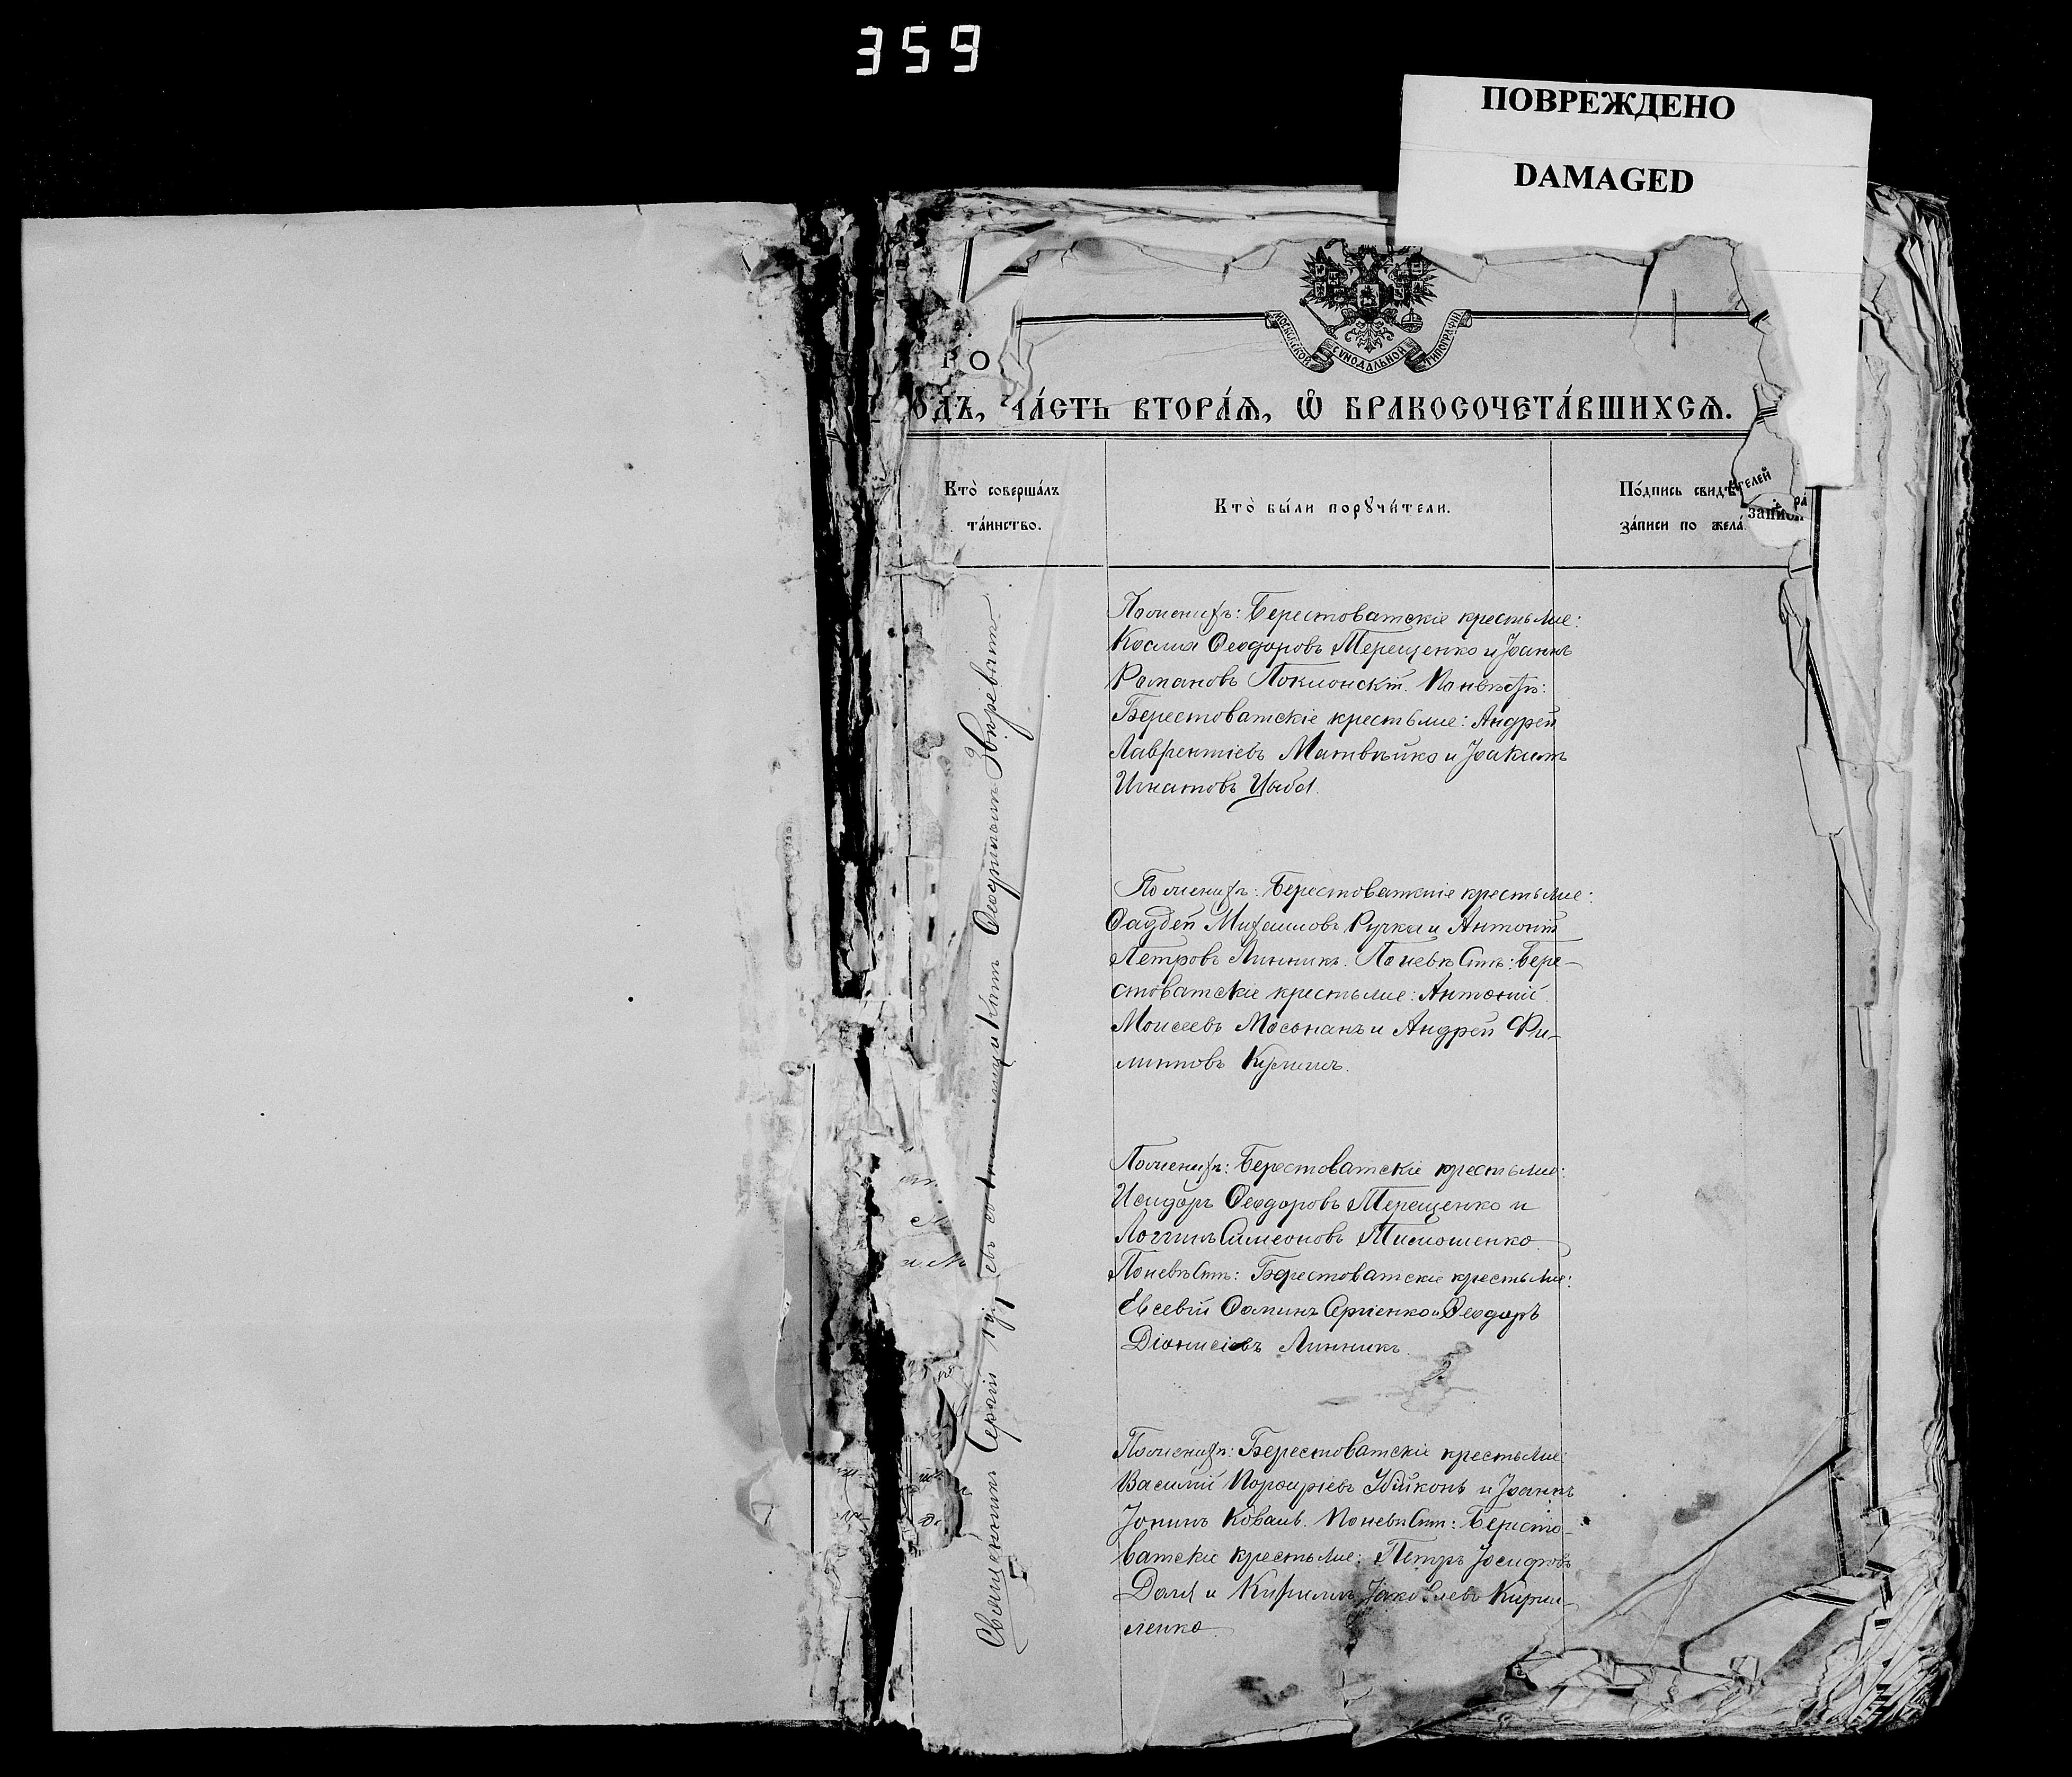 359
ПОВРЕЖДЕНО
DAMAGED
МОСКОВСКОЙ СѴНОДАЛЬНОЙ ТИПОГРАФІИ
РО
ОДЪ, ЧА́СТЬ ВТОРА́Ѧ, Ѡ҆ БРАКОСОЧЕТА́ВШИХСѦ.
Кто̀ соверша́лъ
та́инство.
Кто̀ бы́ли порꙋчи́тели.
По́дпись свидѣтелей
за́писи по жела́
Священникъ Сергій
Ѳеофиломъ Звѣревымъ
По женихѣ: Берестоватскіе крестьяне:
Косма Ѳеодоровъ Терещенко и Іоаннъ
Романовъ Поклонскій. По невѣстѣ:
Берестоватскіе крестьяне: Андрей
Лаврентіевъ Матвѣйко и Іоакимъ
Игнатовъ Цыба.
По женихѣ: Берестоватскіе крестьяне:
Ѳаддей Михаиловъ Ручка и Антоній
Петровъ Линникъ. По невѣстѣ: Бере-
стоватскіе крестьяне: Антоній
Моисеевъ и Андрей Фи-
липповъ
По женихѣ: Берестоватскіе крестьяне:
Исидоръ Ѳеодоровъ Терещенко и
Логгинъ Симеоновъ Тимошенко.
По невѣстѣ: Берестоватскіе крестьяне:
Евсевій Ѳоминъ Сергіенко и Ѳеодоръ
Діонисіевъ Линникъ.
По женихѣ: Берестоватскіе крестьяне:
Василій Порфиріевъ Убійконь и Іоаннъ
Іонинъ Коваль. По невѣстѣ: Бересто-
ватскіе крестьяне: Петръ Іосифовъ
Доля и Кириллъ Іаковлевъ Кирил-
ленко.